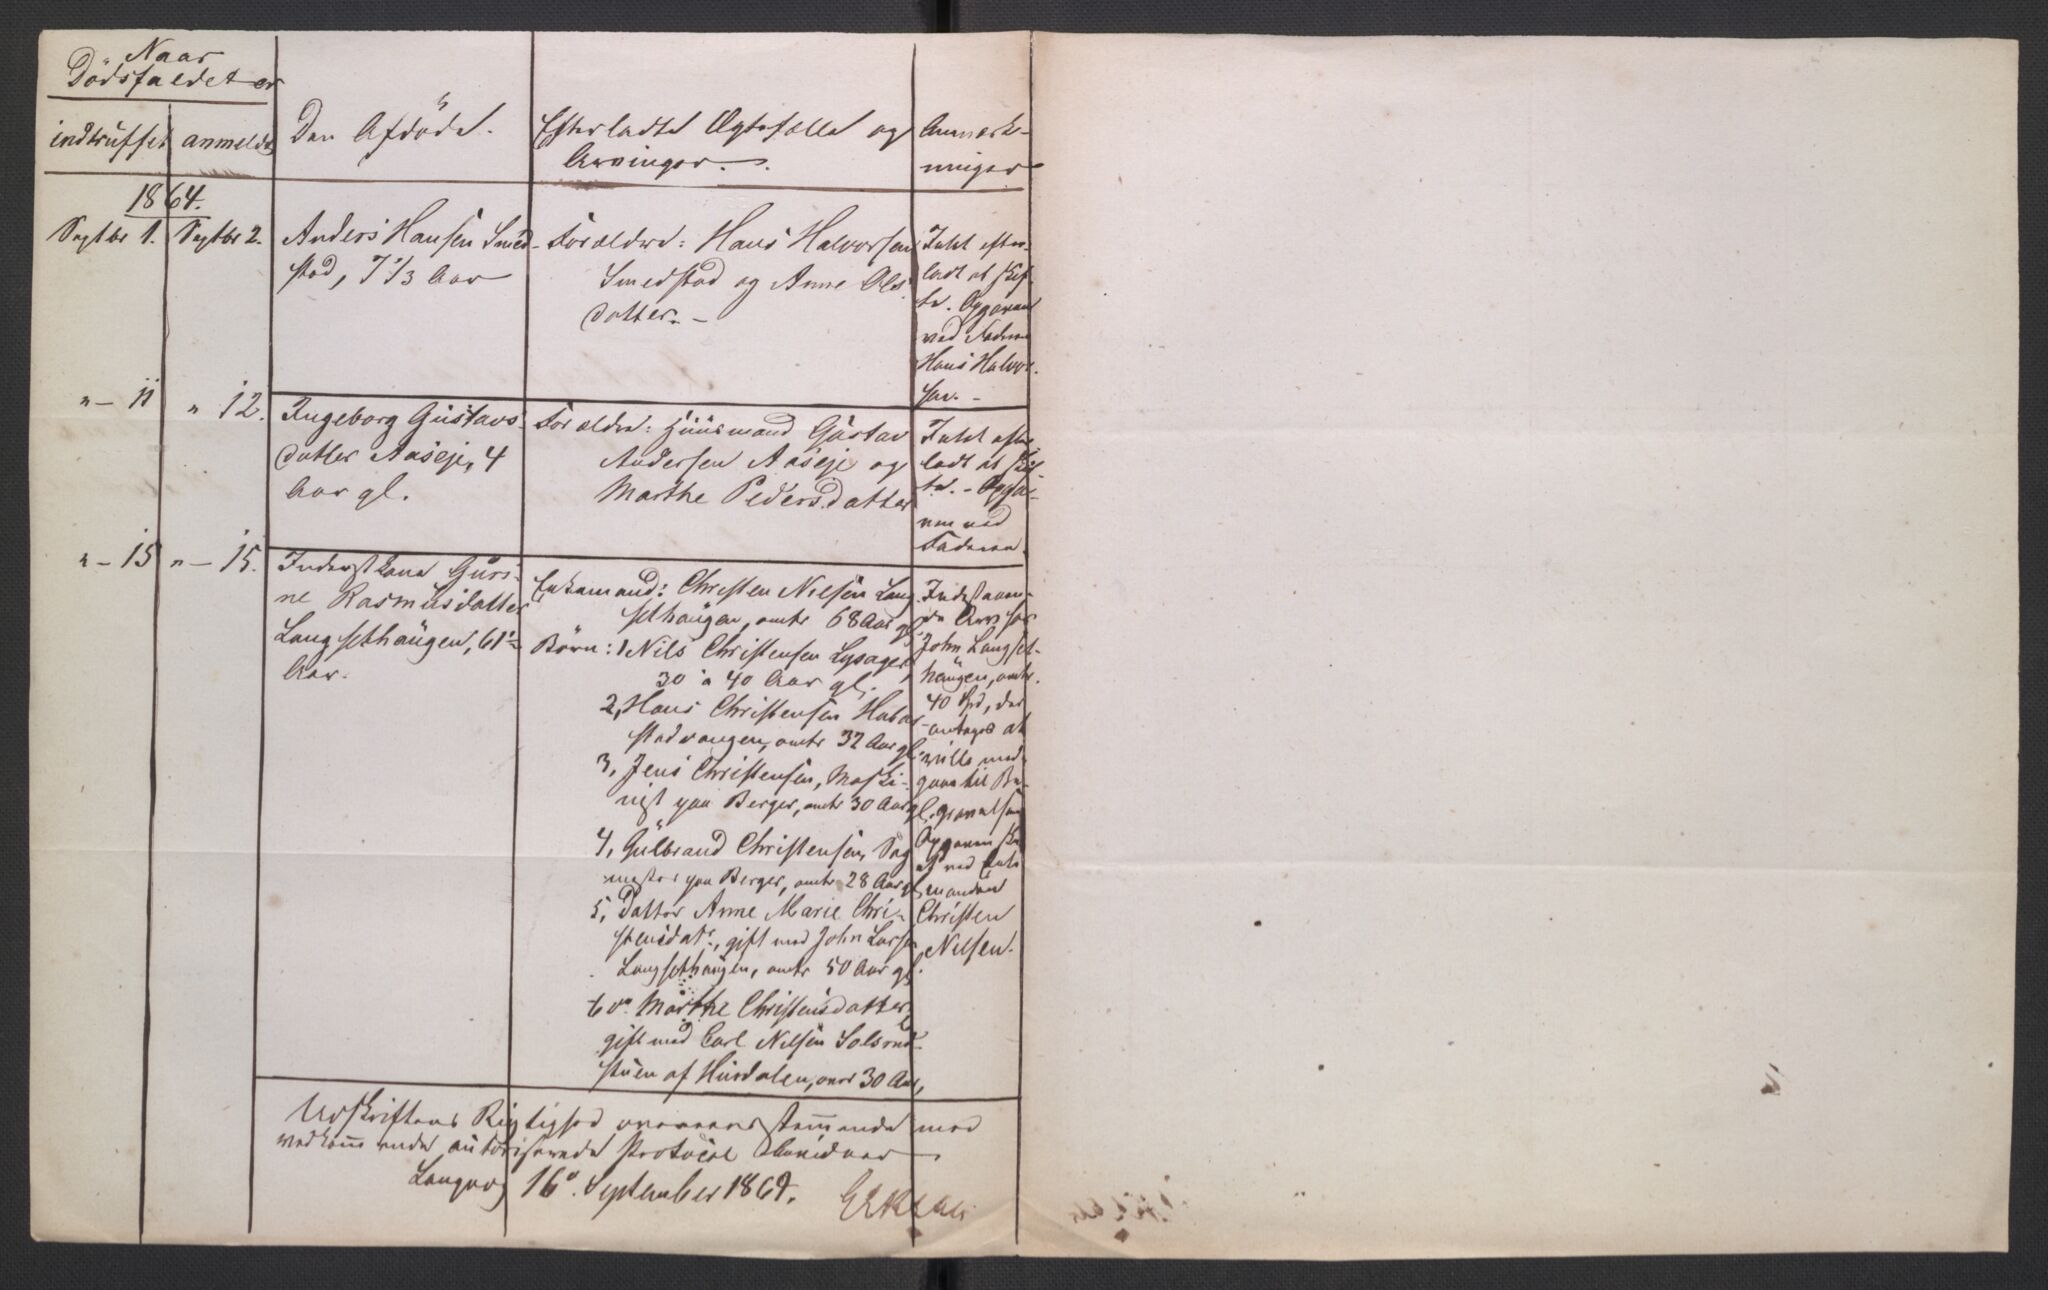 Naar
Dödsfaldet er
indtruffet
anmeldt
Den Afdöde.
Efterladte Ægtefælle og
Arvinger.
Anmærk-
ninger
1864.
Septbr 1.
Septbr 2.
Anders Hansen Smed-
stad, 7 1/3 Aar
Forældre: Hans Halvorsen
Smedstad og Anne Ols-
datter. -
Intet efter-
ladt at skif-
te. Opgaven
ved Faderen
Hans Halvor-
sen. -
" - 11
" 12.
Ingeborg Gustavs-
datter Aaseje, 4
Aar gl.
Forældre: Huusmand Gustav
Andersen Aaseje og
Marthe Pedersdatter
Intet efter-
ladt at skif-
te. - Opga-
ven ved
Faderen.
" - 15
" - 15.
Inderstkone Guri-
ne Rasmusdatter
Langsethaugen, 61 1/2
Aar.
Enkemand: Christen Nilsen Lang-
sethaugen, omtr 68 Aar gl.
Börn: 1 Nils Christensen Lysager,
30 a 40 Aar gl.
2, Hans Christensen Habor-
stadvangen, omtr 32 Aar gl.
3, Jens Christensen, Maski-
nist paa Berger, omtr 30 Aar gl.
4, Gulbrand Christensen, Sag-
mester paa Berger, omtr 28 Aar gl.
5, Datter Anne Marie Chri-
stensdatr., gift med John Larsen
Langsethaugen, omtr 50 Aar gl.
6 do Marthe Christensdatter,
gift med Carl Nilsen Solsrud-
stuen af Hurdalen, over 30 Aar,
Indestaaen-
de Arv hos
John Langset-
haugen, omtr.
40 Spd, der
antages at
ville med-
gaae til Be-
gravelsen
Opgaven ske-
et ved Enke-
manden
Christen
Nilsen.
Udskriftens Rigtighed overeensstemmende med
vedkommende autoriserede Protocol bevidner
Langvog 16de September 1864.